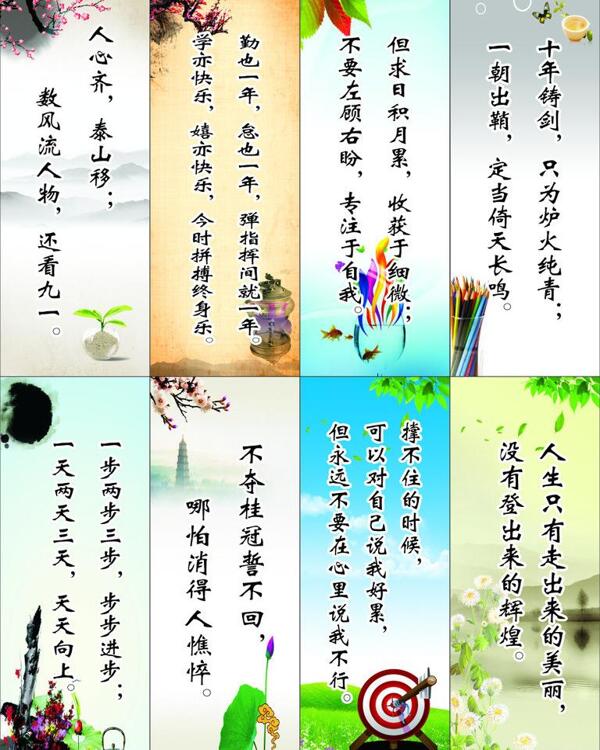 人心齐，泰山移；
数风流人物，还看九一。
勤也一年，怠也一年，弹指挥间就一年。
学亦快乐，嬉亦快乐，今时拼搏终身乐。
但求日积月累，收获于细微；
不要左顾右盼，专注于自我。
十年铸剑，只为炉火纯青；
一朝出鞘，定当倚天长鸣。
一步两步三步，步步进步；
一天两天三天，天天向上。
不夺桂冠誓不回，
哪怕消得人憔悴。
撑不住的时候，
可以对自己说我好累，
但永远不要在心里说我不行。
人生只有走出来的美丽，
没有登出来的辉煌。